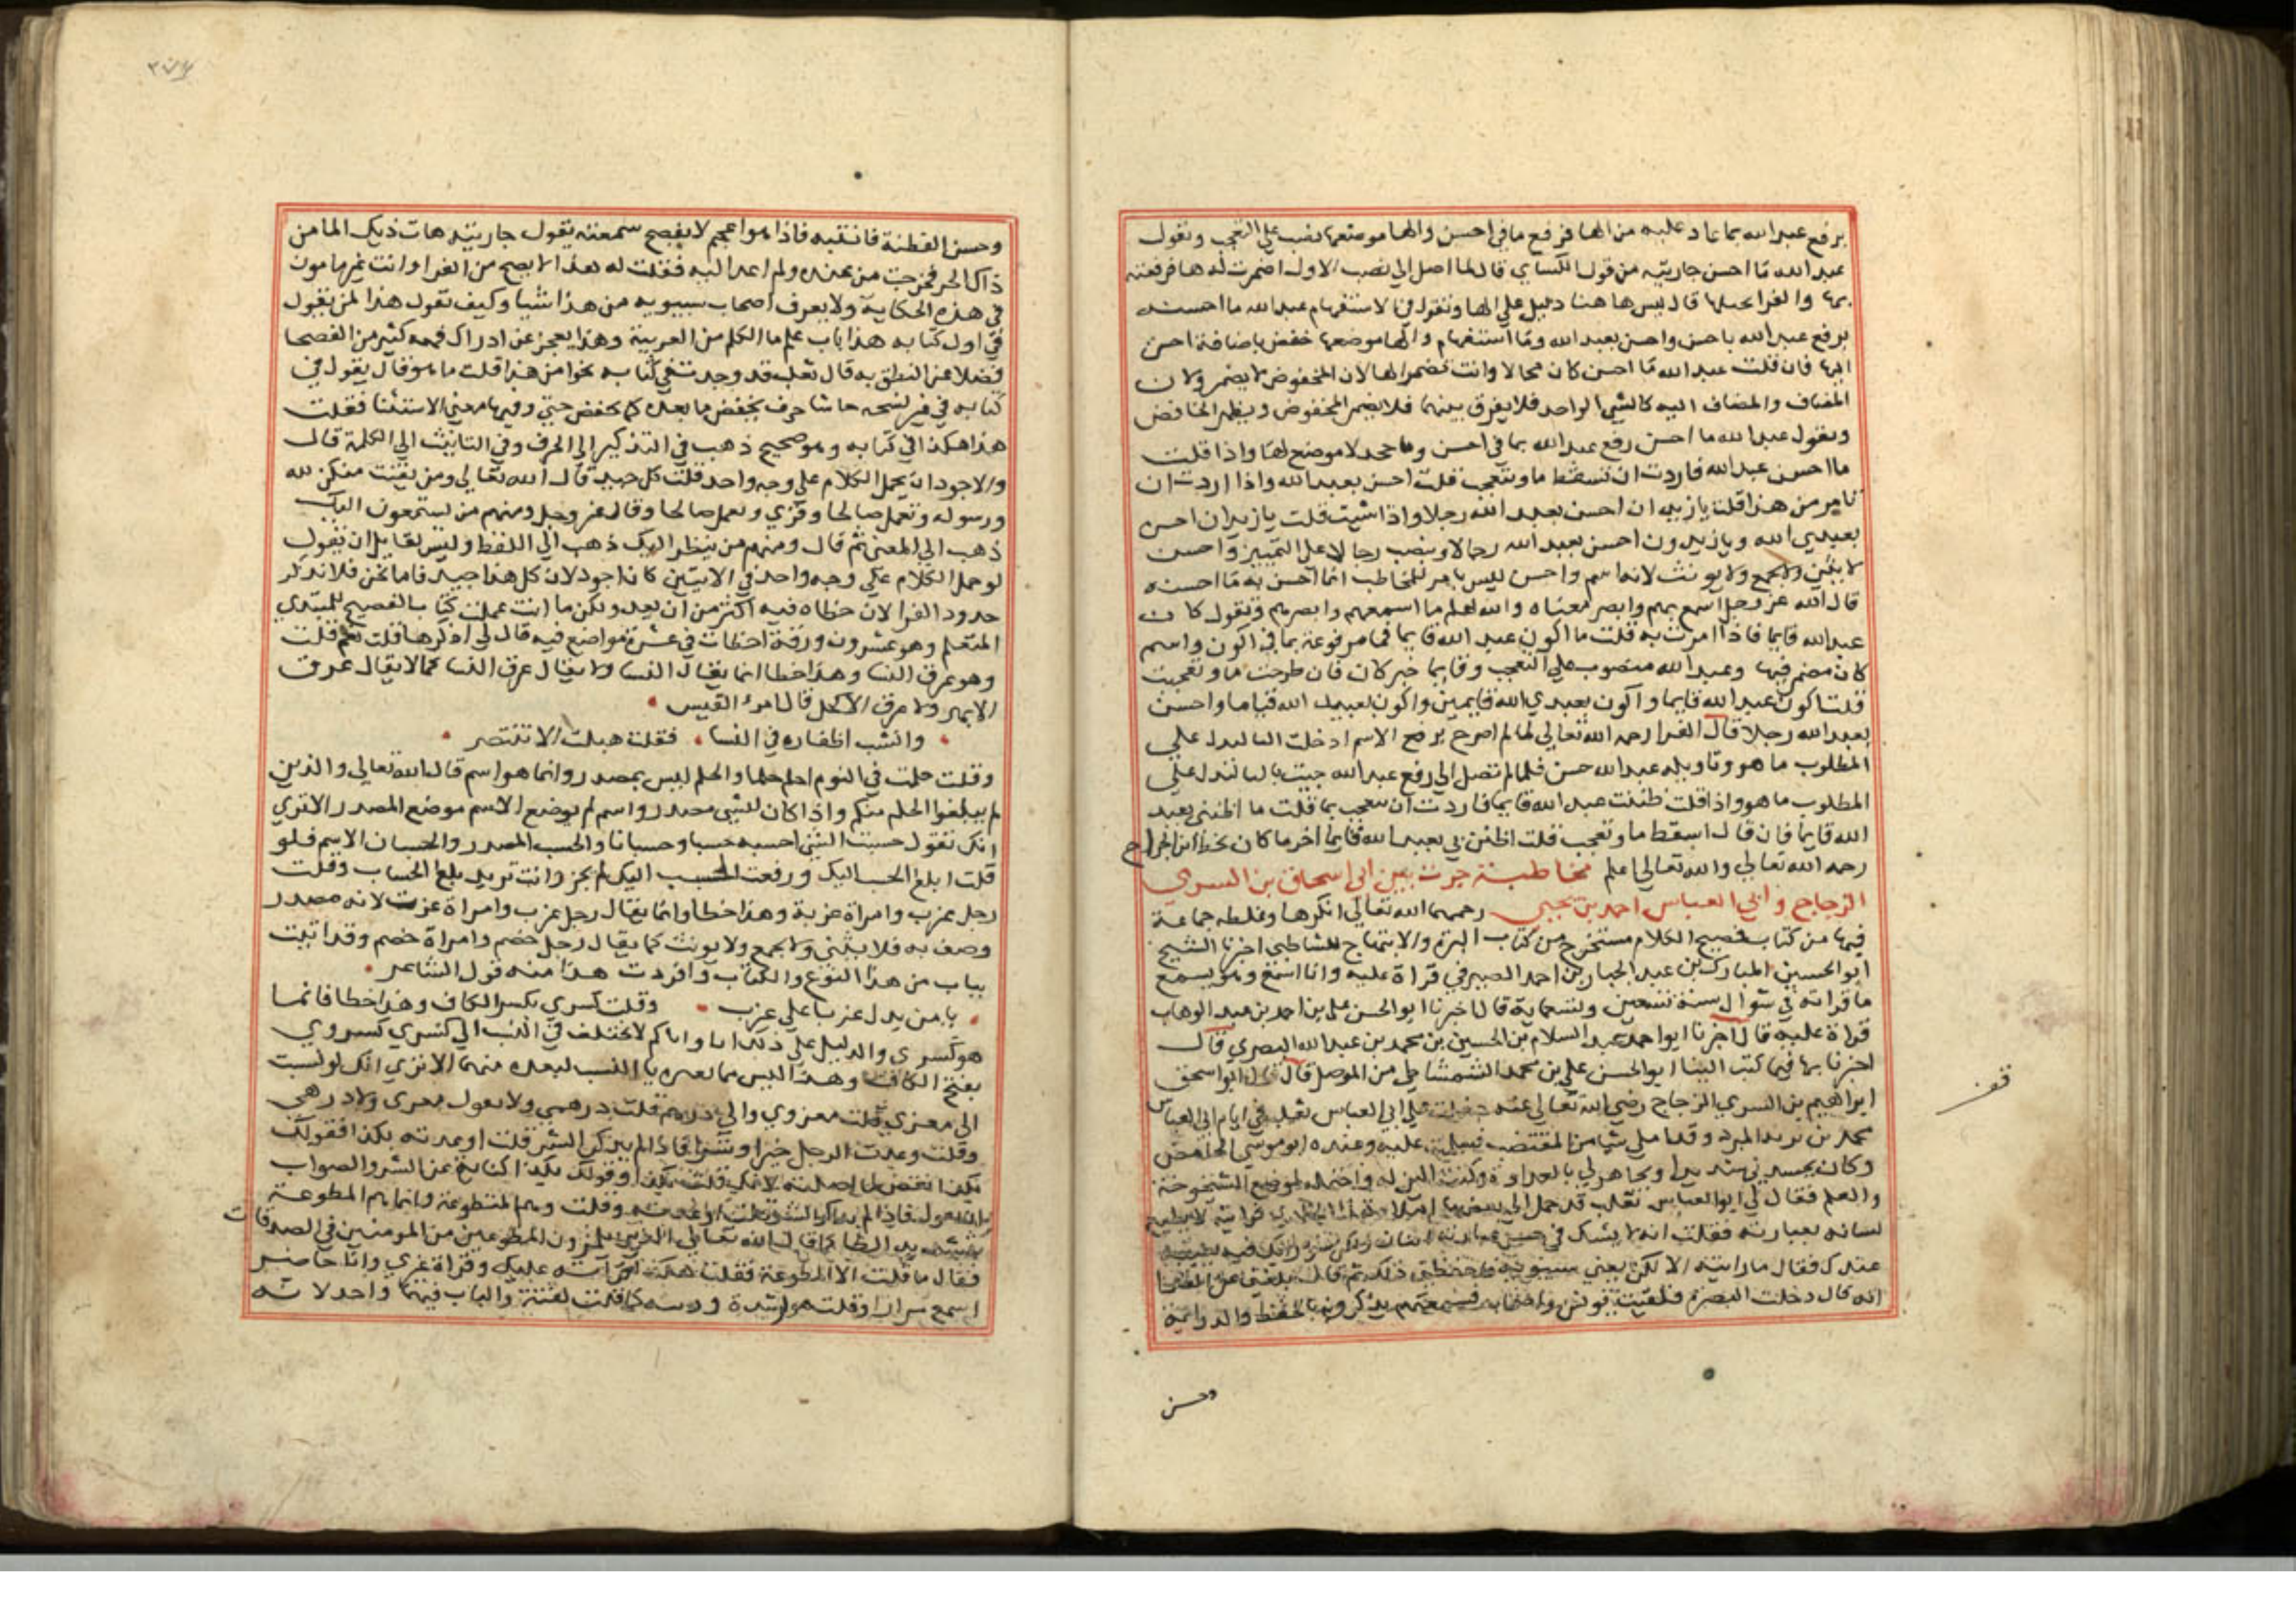 يرفع عبد الله بما عاد عليه من الها فرفع ما في احسن والها موضعها نصب على التعجب وتقول
عبد الله ما احسن جاريته من قول الكساي قال لما اصل الى نصب الاول اضمرت له ها فرفعته
بها والفرا قال ليس ها هنا دليل على الها وتقول في الاستفهام عبد الله ما احسنه
يرفع عبد الله باحسن واحسن بعبد الله وما استفهام والها موضعها خفض باضافة احسن
اليها فان قلت عبد الله ما احسن كان محالا وانت تضمر الها لان المخفوض لا يضمر ولان
المضاف والمضاف اليه كالشي الواحد فلا يفرق بينهما فلا يضمر المخفوض ويظهر الخافض
وتقول عبد الله ما احسن رفع عبد الله بما في احسن وما جحد لا موضع لها واذا قلت
ما احسن عبد الله فاردت ان تسقط ما وتتعجب قلت احسن بعبد الله واذا اردت ان
تامر من هذا قلت يا زيد ان احسن بعبد الله رجلا واذا شيت قلت يا زيدان احسن
بعبدي الله ويا زيدون احسن بعبد الله رجالا وينصب رجالا على التمييز واحسن
لا يثنى ولا يجمع ولا يونث لانه اسم واحسن ليس بامر للمخاطب انما احسن به ما احسنه
قال الله عز وجل اسمع بهم وابصر معناه والله اعلم ما اسمعهم وابصرهم وتقول كان
عبد الله قايما فاذا امرت به قلت ما اكون عبد الله قايما فما مرفوعة بما في اكون واسم
كان مضمر فيها وعبد الله منصوب على التعجب وقايما خبر كان فان طرحت ما وتعجبت
قلت اكون بعبد الله قايما واكون بعبدي الله قايمين واكون بعبيد الله قياما واحسن
بعبد الله رجلا قال الفرا رحمه الله تعالى لما لم اصرح برفع الاسم ادخلت البا لتدل على
المطلوب ما هو وتاويله عبد الله حسن فلما لم تصل الى رفع عبد الله جيت بالبا لتدل على
المطلوب ما هو واذا قلت ظننت عبد الله قايما فاردت ان تتعجب بما قلت ما اظنني بعبد
الله قايما فان قال اسقط ما وتعجب قلت اظنن بي بعبد الله قايما اخر ما كان بخط ابن الجراح
رحمه الله تعالى والله تعالى اعلم مخاطبة جرت بين ابي اسحاق بن السري
الزجاج وابي العباس احمد بن يحيى رحمهما الله تعالى انكرها وغلطه جماعة
فيها من كتاب فصيح الكلام مستخرج من كتاب النزه والابتهاج للشمشاطي اخبرنا الشيخ
ابو الحسين المبارك بن عبد الجبار بن احمد الصيرفي قراة عليه وانا اسمع وهو يسمع
ما قراته في شوال سنة تسعين وتسعماية قال اخبرنا ابو الحسن علي بن احمد بن عبد الوهاب
قراة عليه قال اخبرنا ابو احمد عبد السلام بن الحسين بن محمد بن عبد الله البصري قال
اخبرنا بها فيما كتب الينا ابو الحسن علي بن محمد الشمشاطي من الموصل قال قال ابو اسحق
ابراهيم بن السري الزجاج رضي الله تعالى عنه دخلت على ابي العباس ثعلب في ايام ابي العباس
محمد بن يزيد المبرد وقد املى شيا من المقتضب فسلمت عليه وعنده ابو موسى الحامض
وكان يحسدني شديدا ويجاهرني بالعداوة وكنت الين له واحتمله لموضع الشيخوخة
والعلم فقال لي ابو العباس ثعلب قد حمل الي بعض ما املاه هذا الخلدي فرايته لا يطوع
لسانه بعبارته فقلت انه لا يشك في حسن عبارته اثنان ولكن سو رايك فيه يعيبه
عندك فقال ما رايته الا الكن يعني سيبويه فاحفظني ذلك ثم قال بلغني عن الفرا
انه قال دخلت البصرة فلقيت يونس واصحابه فسمعتهم يذكرونه بالحفظ والدراية
وحسن
قف
٣٧٤
وحسن الفطنة فاتيته فاذا هو اعجم لا يفصح سمعته يقول جاريته هات ذيك الما من
ذاك الجر فخرجت من عنده ولم اعد اليه فقلت له هذا لا يصح عن الفرا وانت غير مامون
في هذه الحكاية ولا يعرف اصحاب سيبويه من هذا شيا وكيف تقول هذا لمن يقول
في اول كتابه هذا باب علم ما الكلم من العربية وهذا يعجز عن ادراك فهمه كثير من الفصحا
فضلا عن النطق به قال ثعلب قد وجدت في كتابه نحوا من هذا قلت ما هو قال يقول في
كتابه في غير نسخه حاشا حرف يخفض ما بعده كما يخفض حتى وفيها معنى الاستثنا فقلت
هذا هكذا في كتابه وهو صحيح ذهب في التذكير الى الحرف وفي التانيث الى الكلمة قال
والاجود ان يحمل الكلام على وجه واحد قلت كل جيد قال الله تعالى ومن يقنت منكن لله
ورسوله وتعمل صالحا وقري ويعمل صالحا وقال عز وجل ومنهم من يستمعون اليك
ذهب الى المعنى ثم قال ومنهم من ينظر اليك ذهب الى اللفظ وليس لقايل ان يقول
لو حمل الكلام على وجه واحد في الايتين كان اجود لان كل هذا جيد فاما نحن فلا نذكر
حدود الفرا لان خطاه فيه اكثر من ان يعد ولكن ما انت عملت كتاب الفصيح للمبتدي
المتعلم وهو عشرون ورقة اخطات في عشرة مواضع فيه قال لي اذكرها قلت نعم قلت
وهو عرق النسا وهذا خطا انما يقال النسا ولا يقال عرق النسا كما لا يقال عرق
الابهر ولا عرق الاكحل قال امرؤ القيس
وانشب اظفاره في النسا فقلت هبلت الا تنتصر
وقلت حلمت في النوم احلم حلما والحلم ليس بمصدر وانما هو اسم قال الله تعالى والذين
لم يبلغوا الحلم منكم واذا كان للشي مصدر واسم لم يوضع الاسم موضع المصدر الا ترى
انك تقول حسبت الشي احسبه حسبا وحسبانا والحسب المصدر والحسبان الاسم فلو
قلت ابلغ الحسب اليك ورفعت الحسب اليك لم يجز وانت تريد بلغ الحساب وقلت
رجل عزب وامراة عزبة وهذا خطا وانما يقال رجل عزب وامراة عزب لانه مصدر
وصف به فلا يثنى ولا يجمع ولا يونث كما يقال رجل خصم وامراة خصم وقد اتيت
بباب من هذا النوع والكتاب وافردت هذا منه قول الشاعر
يا من يدل عزبا على عزب وقلت كسري بكسر الكاف وهذا خطا فانما
هو كسرى والدليل على ذلك انا واياكم لا نختلف في النسب الى كسرى كسروي
بفتح الكاف وهذا ليس مما يغيره يا النسب لبعده منهما الا ترى انك لو نسبت
الى معزى قلت معزوي والى درهم قلت درهمي ولا يقول معزى ولا درهمي
وقلت وعدت الرجل خيرا وشرا فاذا لم يذكر الشر قلت اوعدته بكذا فقولك
بكذا نقض لما اصلته لانك قلت بكذا وقولك بكذا كناية عن الشر والصواب
ان تقول فاذا لم يذكر الشر قلت اوعدته وقلت وهم المتطوعة وانما هم المطوعة
بتشديد الطا كما قال الله تعالى الذين يلمزون المطوعين من المومنين في الصدقات
فقال ما قلت الا المطوعة فقلت هكذا قراته عليك وقراة غيري وانا حاضر
اسمع مرارا وقلت هو لرشدة وزنيه كما قلت لغية والباب فيهما واحد لانه